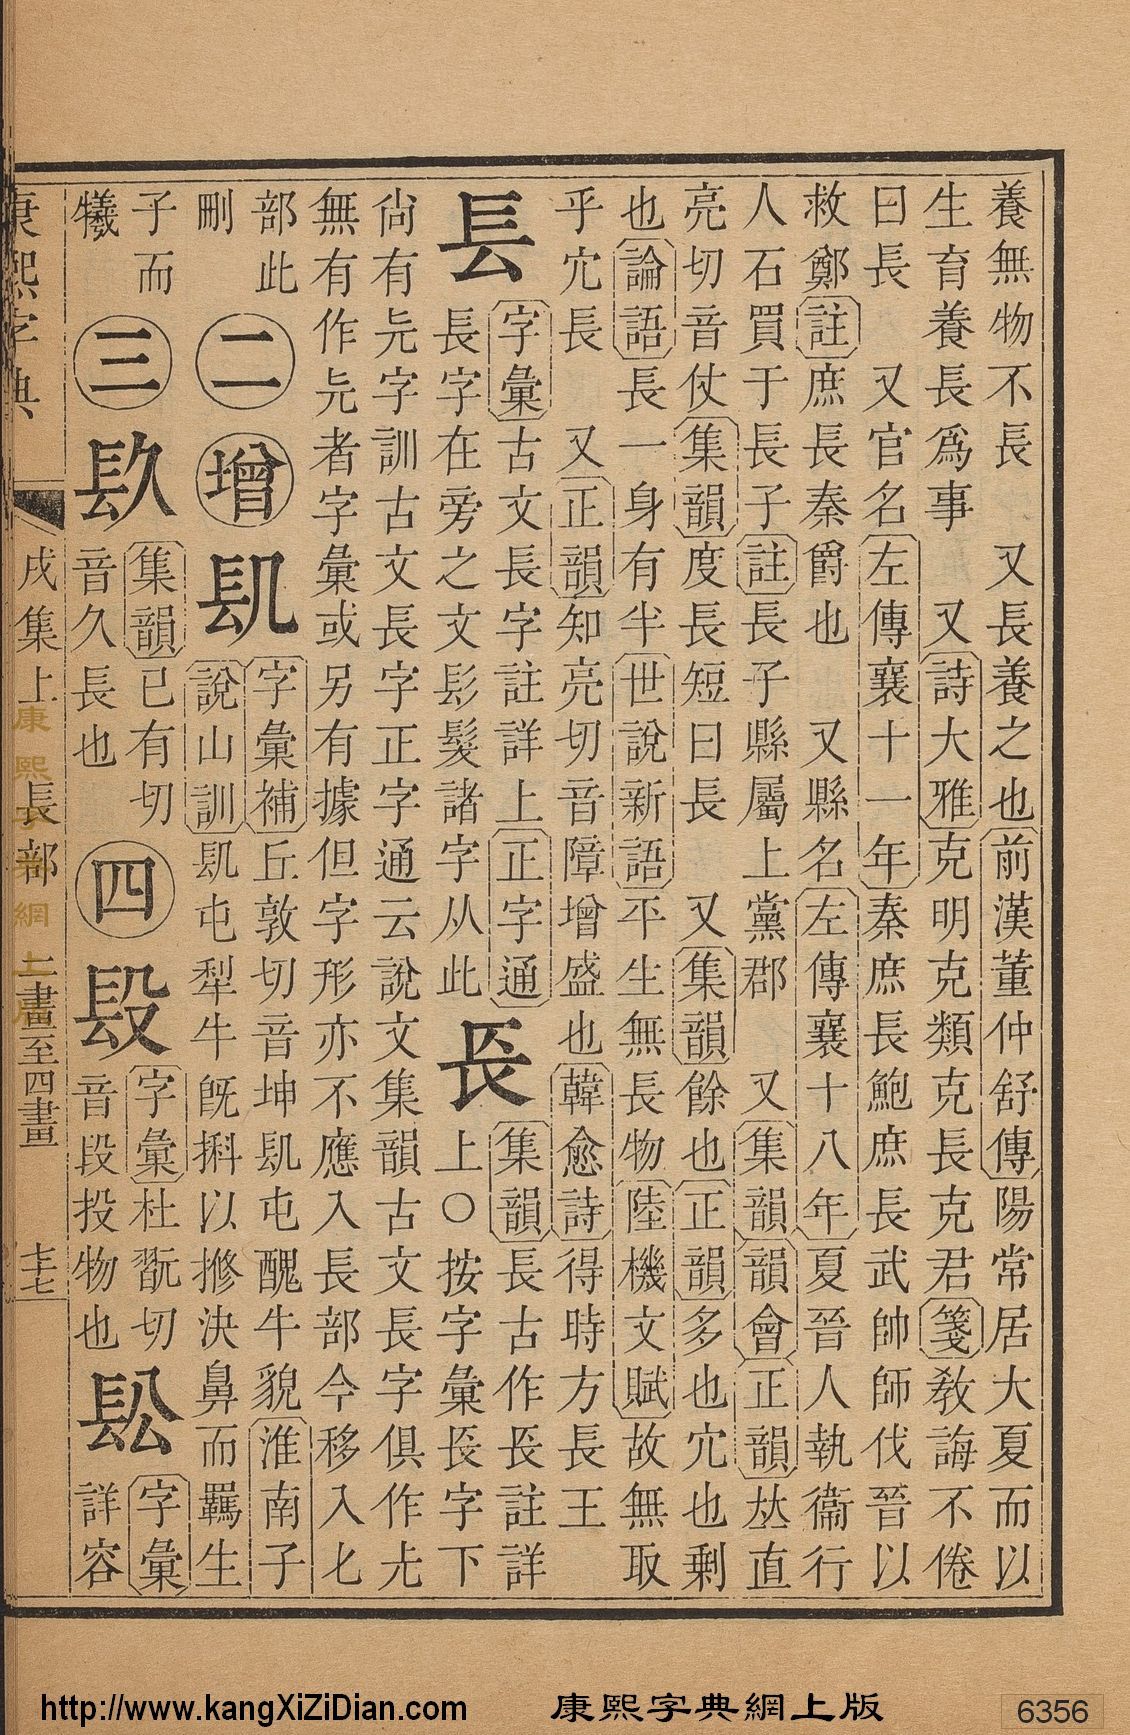 養無物不長　又長養之也前漢董仲舒傳陽常居大夏而以
生育養長爲事　又詩大雅克明克類克長克君箋敎誨不倦
曰長　又官名左傳襄十一年秦庶長鮑庶長武帥師伐晉以
救鄭註庶長秦爵也　又縣名左傳襄十八年夏晉人執衞行
人石買于長子註長子縣屬上黨郡　又集韻韻會正韻𠀤直
亮切音仗集韻度長短曰長　又集韻餘也正韻多也宂也剩
也論語長一身有半世說新語平生無長物陸機文賦故無取
乎宂長　又正韻知亮切音障增盛也韓愈詩得時方長王
镸
字彙古文長字註詳上正字通
長字在旁之文髟髮諸字从此
𨱗
集韻長古作𨱗註詳
上○按字彙𨱗字下
尙有兂字訓古文長字正字通云說文集韻古文長字俱作
無有作兂者字彙或另有據但字形亦不應入長部今移入匕
部此
刪
二
增
字彙補丘敦切音坤屯醜牛貌淮南子
說山訓屯犁牛旣㹔以㨇決鼻而羈生
子而
犧
三
镹
集韻已有切
音久長也
四
字彙杜翫切
音段投物也
字彙
詳容
康熙字典
戌集上
長部
二畫至四畫
七
康熙字典網上版
http://www.kangXiZiDian.com
康熙字典網上版
6356